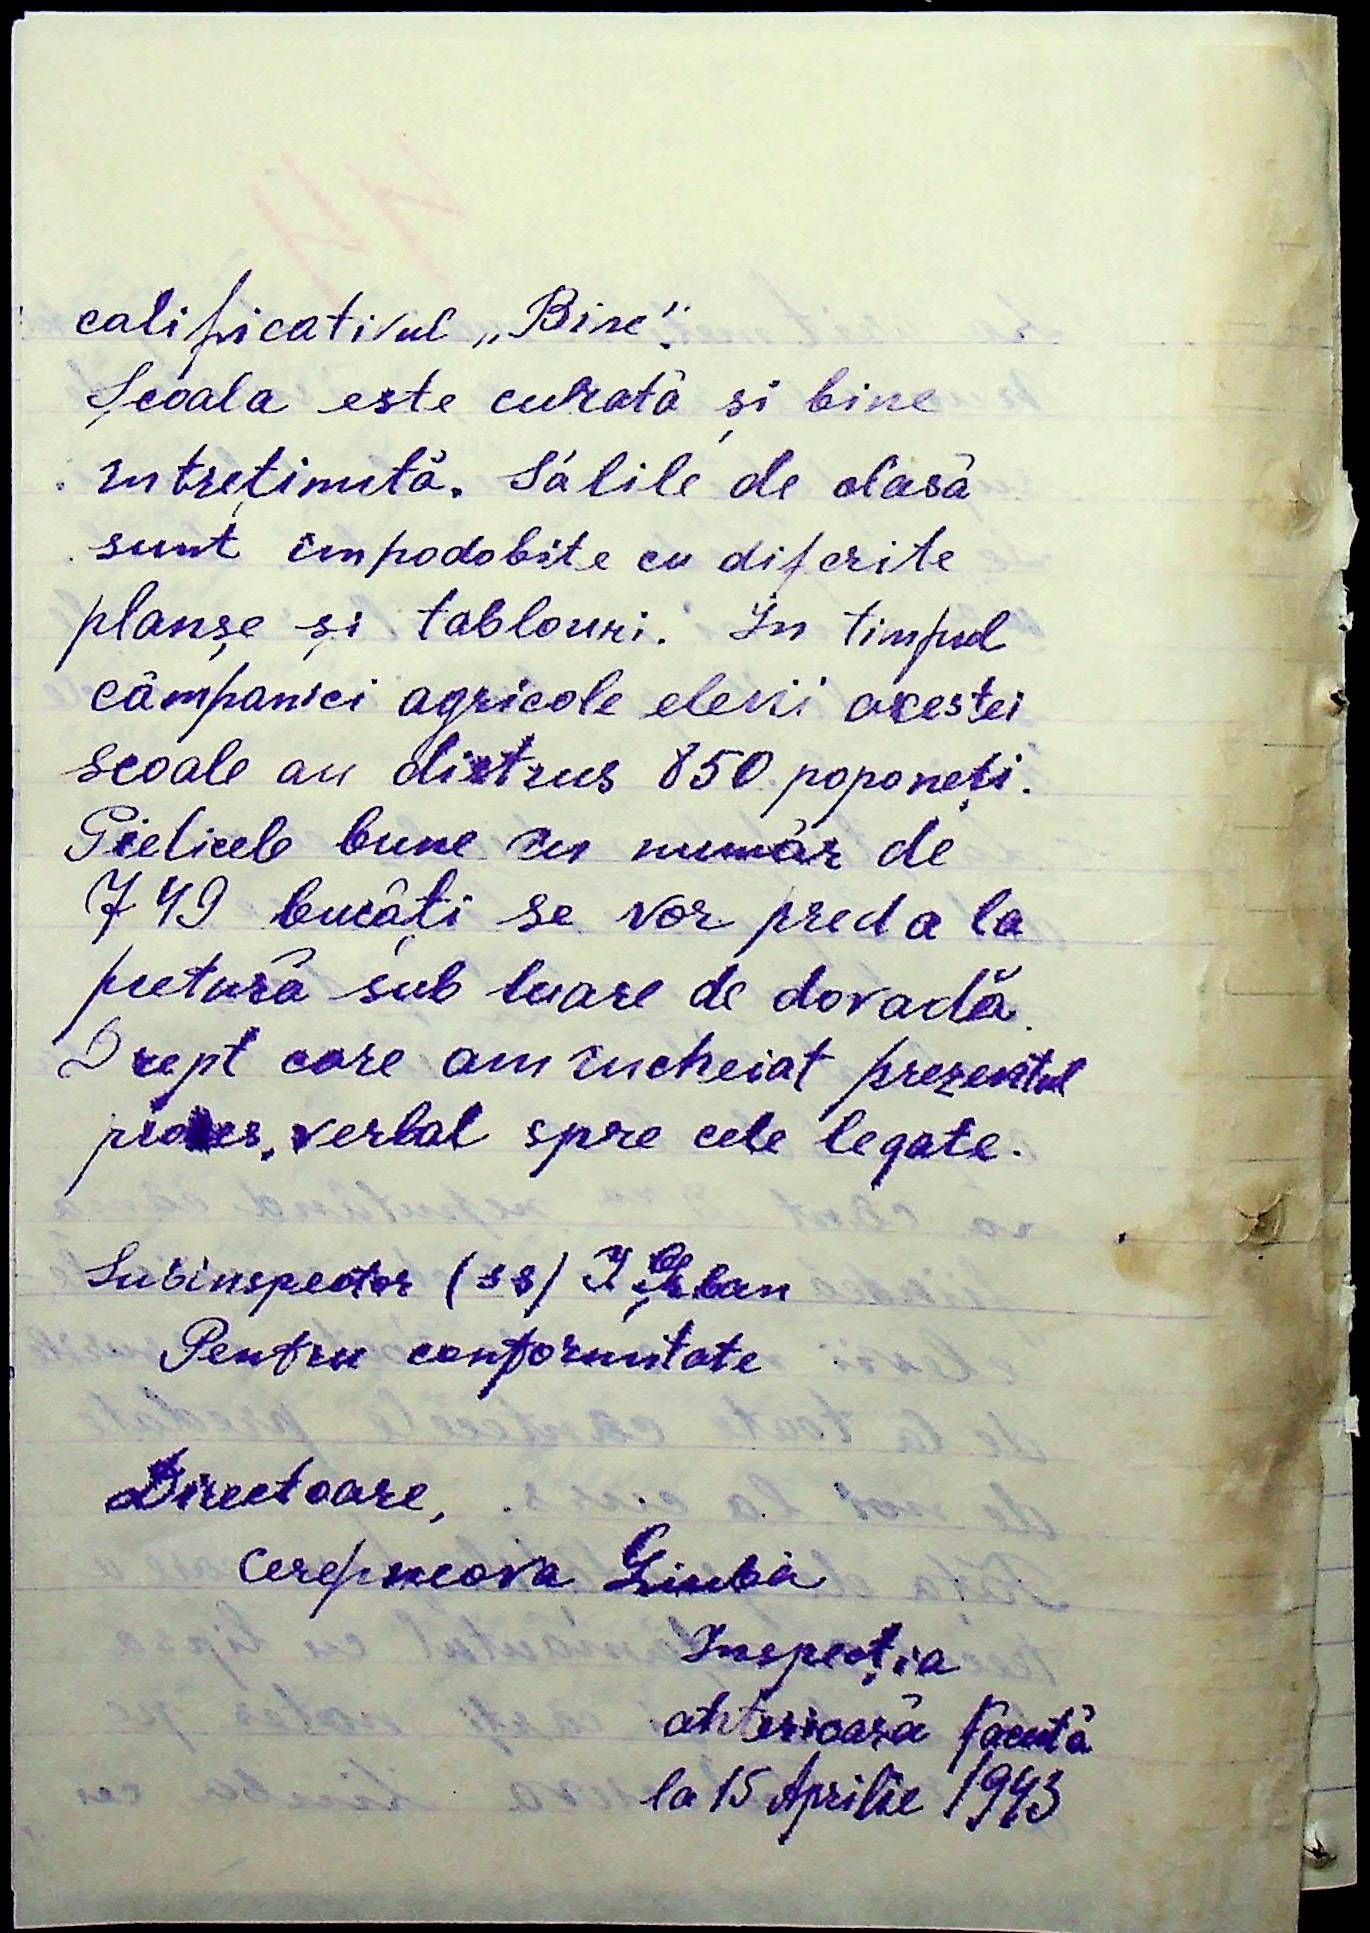 calificativul „Bine”.
Școala este curată și bine
întreținută. Sălile de clasă
sunt împodobite cu diferite
planșe și tablouri. In timpul
câmpaniei agricole elevii acestei
scoale au distrus 850 poponeți.
bune în număr de
749 bucăți se vor preda la
pretură sub luare de dovadă.
Drept care am încheiat prezentul
proces, verbal spre cele legate.
Subinspector (ss) I Șerban
Pentru conformitate
Directoare,
Liuba
Inspecția
anterioară făcută
la 15 Aprilie 1943